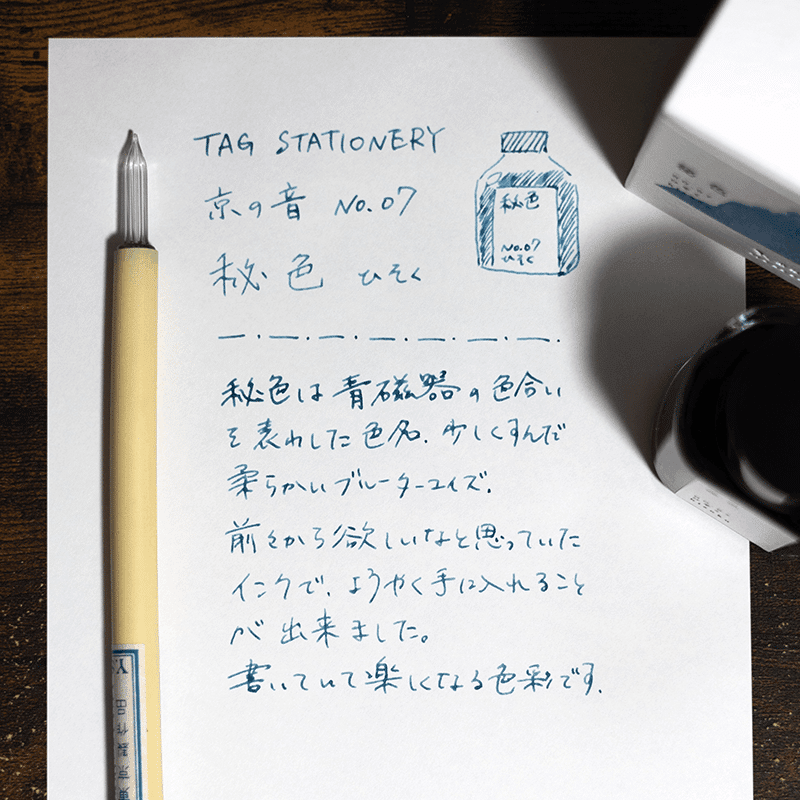 TAG STATIONERY
京の音 No.07
秘色 ひそく
秘色
No.07
ひそく
秘色は青磁器の色合い
を表わした色名.少しくすんだ
柔らかいブルーターコイズ.
前々から欲しいなと思っていた
インクで、ようやく手に入れること
が出来ました。
書いていて楽しくなる色彩です.